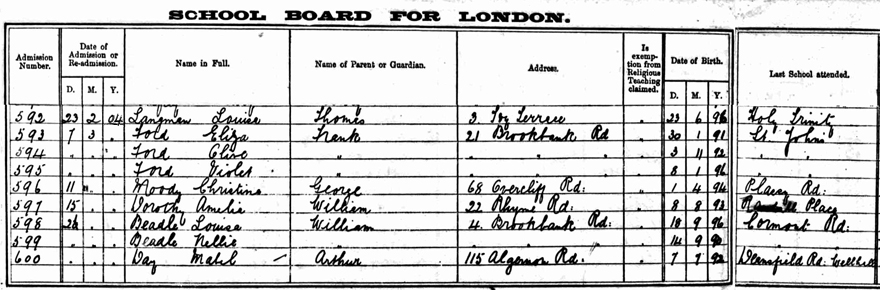 SCHOOL BOARD FOR LONDON.
Admission Number. Date of Admission or Re-admission. D. M. Y. Name in Full. Name of Parent or Guardian. Address. Is exemption from Religious Teaching claimed. Date of Birth. D. M. Y. Last School attended.
592 23 2 04 Langman Louisa Thomas 3. Ivy Terrace " 23 6 96 Holy Trinity
593 7 3 . Ford Eliza Frank 21 Brookbank Rd " 30 1 91 St. Johns
594 . . . Ford Clive " " " " . 3 11 92 " "
595 . . . Ford Violet " " " " . 8 1 96 " "
596 11 " . Moody Christina George 68 Overcliff Rd: " 1 4 94 Plassy Rd:
597 15 . . Amelia William 22 Rhyme Rd: " 8 8 93 Place
598 26 . . Beadle Louisa William 4. Brookbank Rd: . 18 9 96 Cormont Rd:
599 . . . Beadle Nellie " " " . 14 9 " "
600 . . . Day Mabel Arthur 115 Algernon Rd. . 7 7 92 Deansfield Rd: